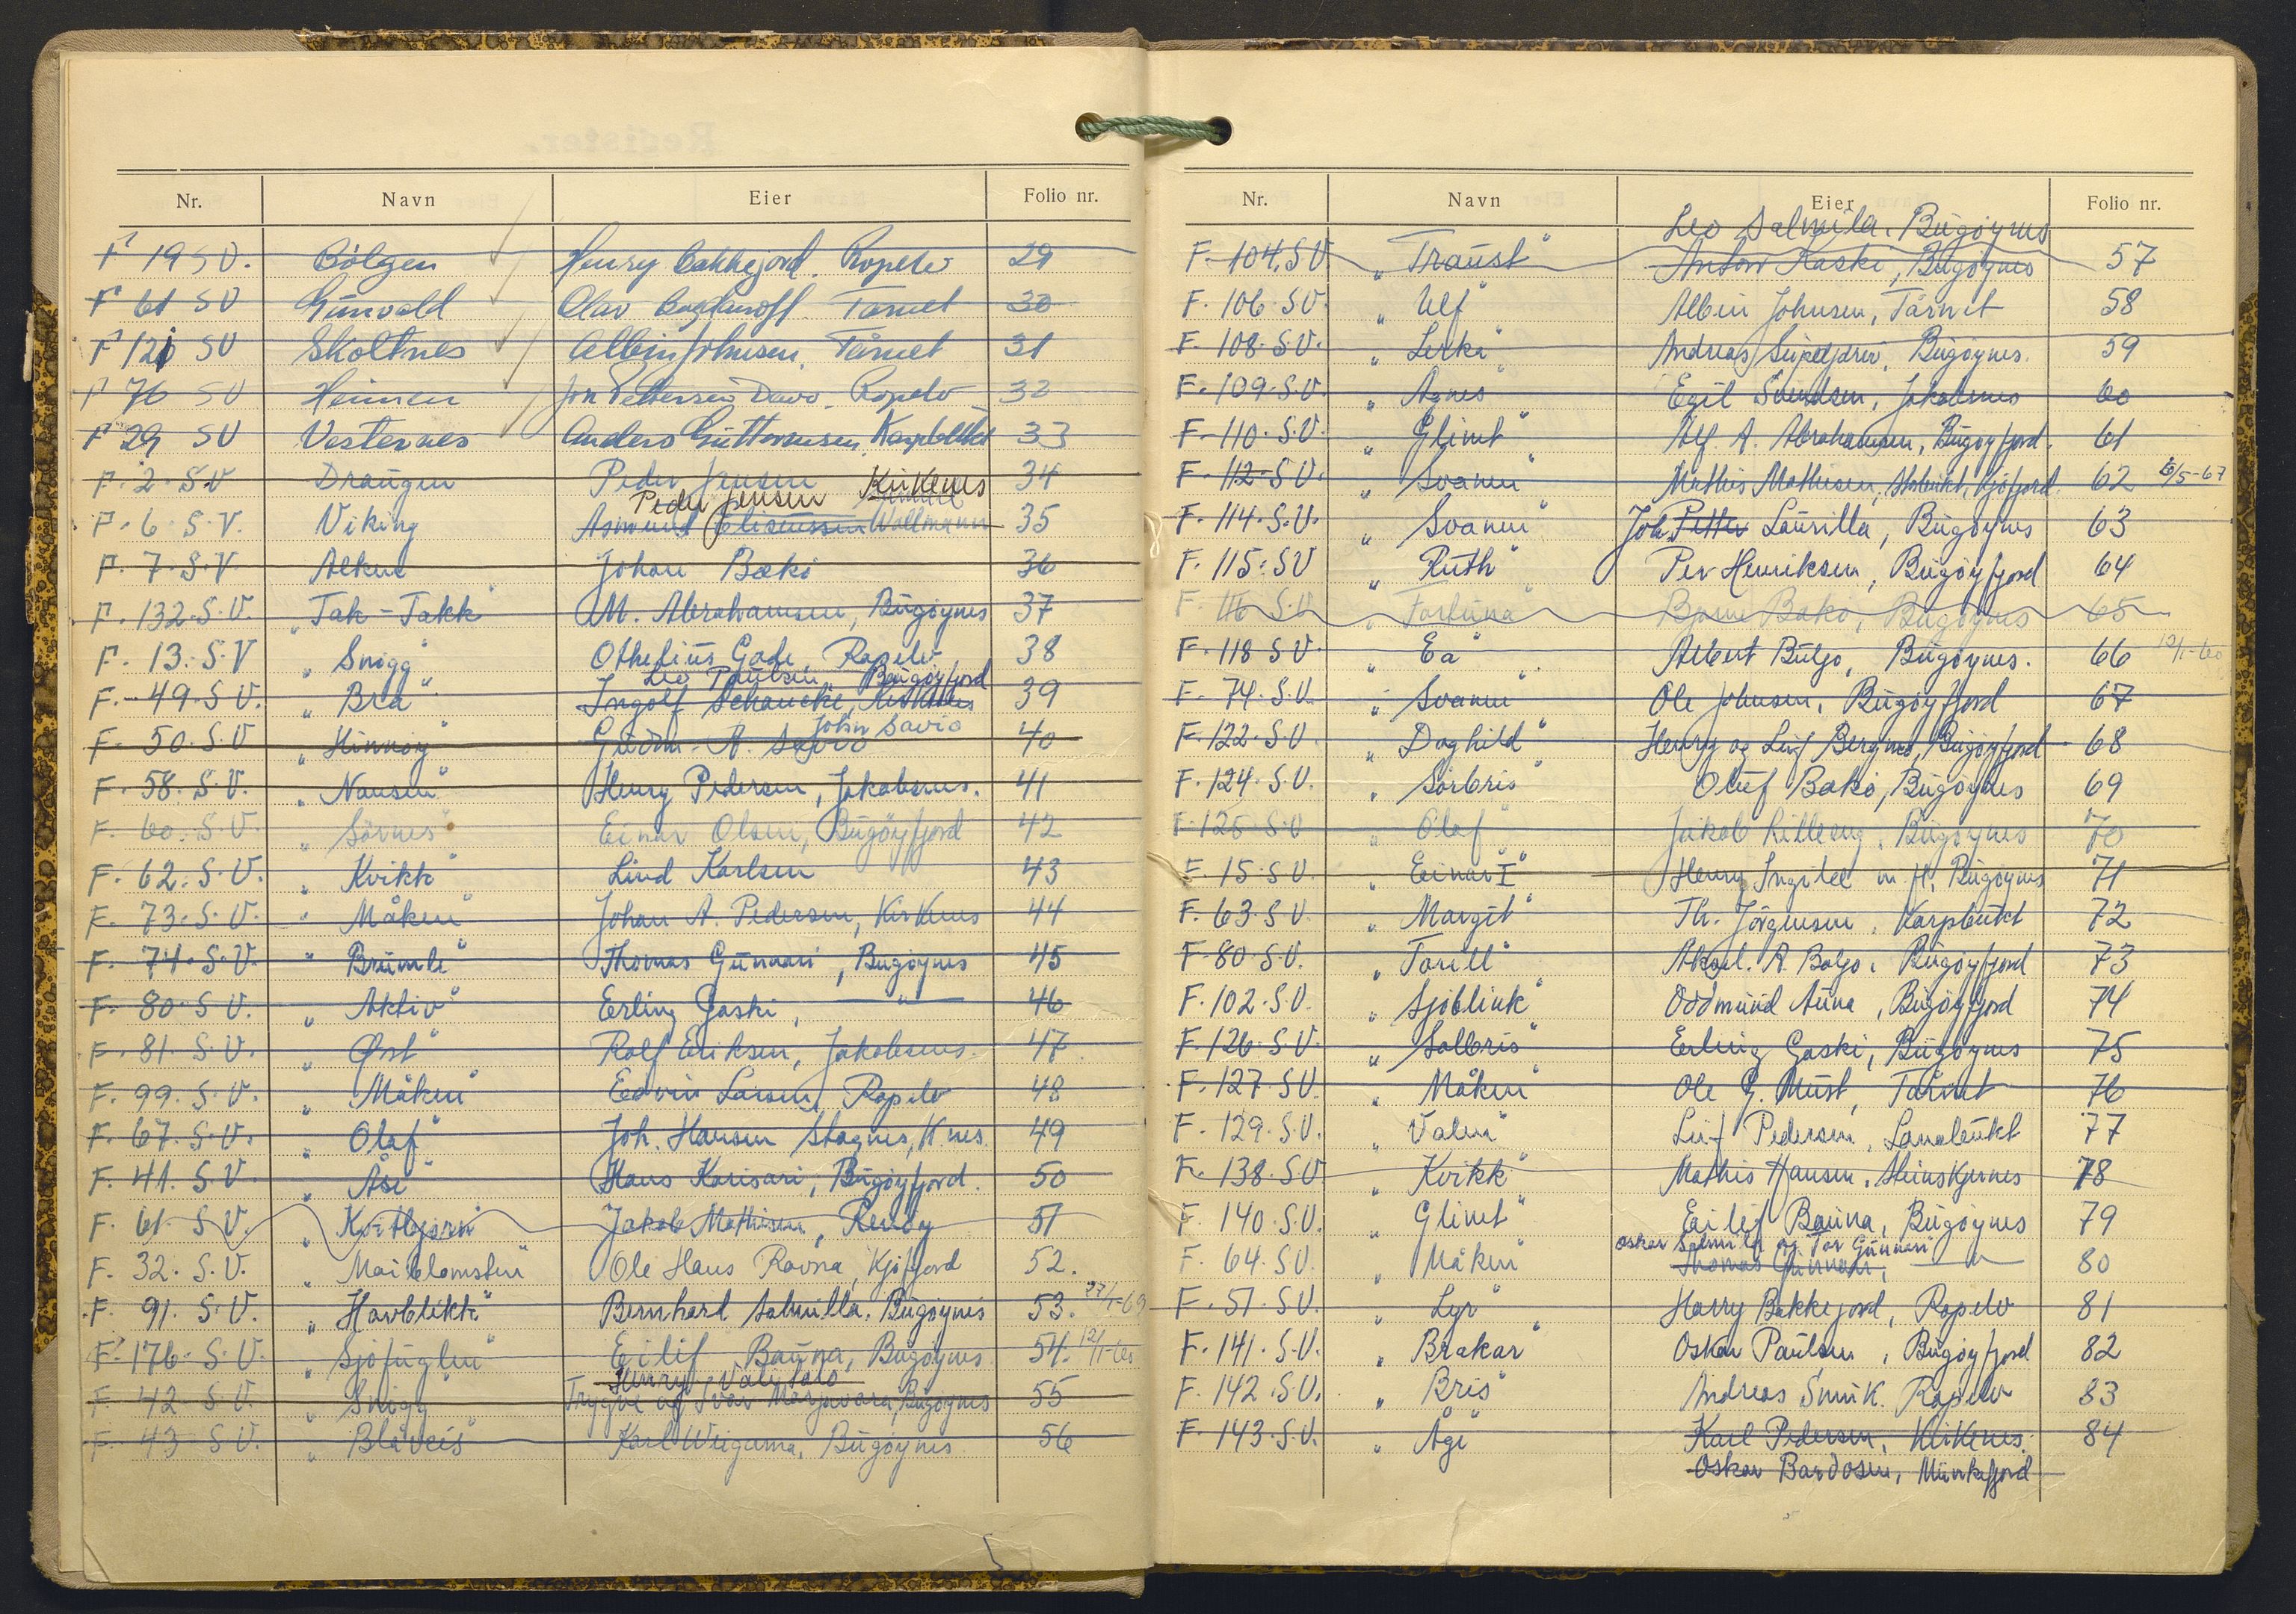 Nr. Navn Eier Folio nr.
F 19 SV. Bölgen Henry Bakkejord. Ropelv 29
F 61 SV Gunvald Olav Bogdanoff. Tårnet 30
F 121 SV Skoltnes Albin Johnsen, Tårnet 31
F 76 SV Heimen Jon Pettersen Ropelv 32
F 29 SV Vesternes Anders Guttormsen, Karpbukt 33
F. 2. S.V Draugen Peder Jensen Kirkenes 34
Peder Jensen
F. 6. S.V. Viking Asmund Wollmann 35
F. 7. S.V. Alken Johan Bækö 36
F. 132. S.V. „Tak-Takk" M. Abrahamsen, Bugöynes 37
F. 13. S.V „ Snögg" Othelius Gade, Ropelv 38
Leo Paulsen Bugöyfjord
F. 49. S.V. „ Bra" Ingolf Schancke, Kirkenes 39
John Savio
F. 50. S.V „ Hinnöy" Gudm. A. Savio 40
F. 58. S.V. „ Nansen" Henry Pedersen, Jakobsnes. 41
F. 60. S.V. „ Sörnes" Einar Olsen, Bugöyfjord 42
F. 62. S.V. „ Kvikk" Lind Karlsen 43
F. 73. S.V. „ Måken" Johan A. Pedersen, Kirkenes 44
F. 74. S.V. „ Brumle" Thomas Gunnari, Bugöynes 45
F. 80. S.V. „ Aktiv" Erling Gaski, —„— 46
F. 81. S.V. „ Øst" Rolf Eriksen, Jakobsnes. 47
F. 99. S.V. „ Måken" Edvin Larsen, Ropelv 48
F. 67. S.V. „ Olaf" Joh. Hansen Stagnes, K.nes. 49
F. 41. S.V. „ Åse" Hans Karisari, Bugöyfjord. 50
F. 61. S.V. „ Kvitbjörn" Jakob Mathisen, Renöy 51
F. 32. S.V. „ Maiblomsten" Ole Hans Ravna, Kjöfjord 52.
F. 91. S.V. „ Havblikk" Bernhard Salmilla. Bugöynes 53. 27/1-69
F. 176. S.V. „ Sjöfuglen" Eilif Bauna, Bugöynes 54. 12/1-60
Henry Valitalo
F. 42. S.V. „ Snögg" Trygve og Ivar Marjavara, Bugöynes 55
F. 43. S.V. „ Blåveis" Karl Weigama, Bugöynes 56
Nr. Navn Eier Folio nr.
Leo Salmila. Bugöynes
F. 104. SV „ Traust" Anton Kaski, Bugöynes 57
F. 106. S.V. „ Ulf" Albin Johnsen, Tårnet 58
F. 108. S.V. „ Lerka" Andreas Seipäjärvi, Bugöynes. 59
F. 109. S.V. „ Agnes" Egil Svendsen, Jakobsnes 60
F. 110. S.V. „ Glimt" Alf. A. Abrahamsen, Bugöyfjord. 61
F. 112. S.V. „ Svanen" Mathis Mathisen, Kjöfjord. 62 6/5-67
F. 114. S.V. „ Svanen" Joh. Petter Laurilla, Bugöynes 63
F. 115. SV „ Ruth" Per Henriksen, Bugöyfjord 64
F. 116 S.V „ Fortuna" Bjarne Bakö, Bugöynes 65
F. 118 S.V. „ Ea" Albert Buljo, Bugöynes. 66 12/1-60
F. 74. S.V. „ Svanen" Ole Johnsen, Bugöyfjord 67
F. 122. S.V. „ Daghild" Henry og Leif Bergmo, Bugöyfjord 68
F. 124. S.V. „ Sörbris" Oluf Bakö, Bugöynes 69
F. 125. S.V „ Olaf" Jakob Lilleeng. Bugöynes 70
F. 15. S.V. „ Einar I" Henry Ingilæ m. fl. Bugöynes 71
F. 63. S.V. „ Margit" Th. Jörgensen, Karpbukt 72
F. 80. S.V. „ Torill" Aksel. R. Boljo, Bugöyfjord 73
F. 102. S.V. „ Sjöblink" Oddmund Auna, Bugöyfjord 74
F. 126. S.V. „ Solbris" Erling Gaski, Bugöynes 75
F. 127. S.V. „ Måken" Ole G. Must, Tårnet 76
F. 129. S.V. „ Valen" Leif Pedersen, Lanabukt 77
F. 138. S.V „ Kvikk" Mathis Hansen, Steinskjernes 78
F. 140. S.V. „ Glimt" Eilif Bauna, Bugöynes 79
Oskar Salmila og Tor Gunnari
F. 64. S.V. „ Måken" Thomas Gunnari, —„— 80
F. 51. S.V. „ Lyr" Harry Bakkejord, Ropelv 81
F. 141. S.V. „ Brakar" Oskar Paulsen, Bugöyfjord 82
F. 142. S.V. „ Bris" Andreas Smuk. Ropelv 83
F. 143. S.V. „ Ågi" Karl Pedersen, Kirkenes. 84
Oskar Bardosen, Munkefjord